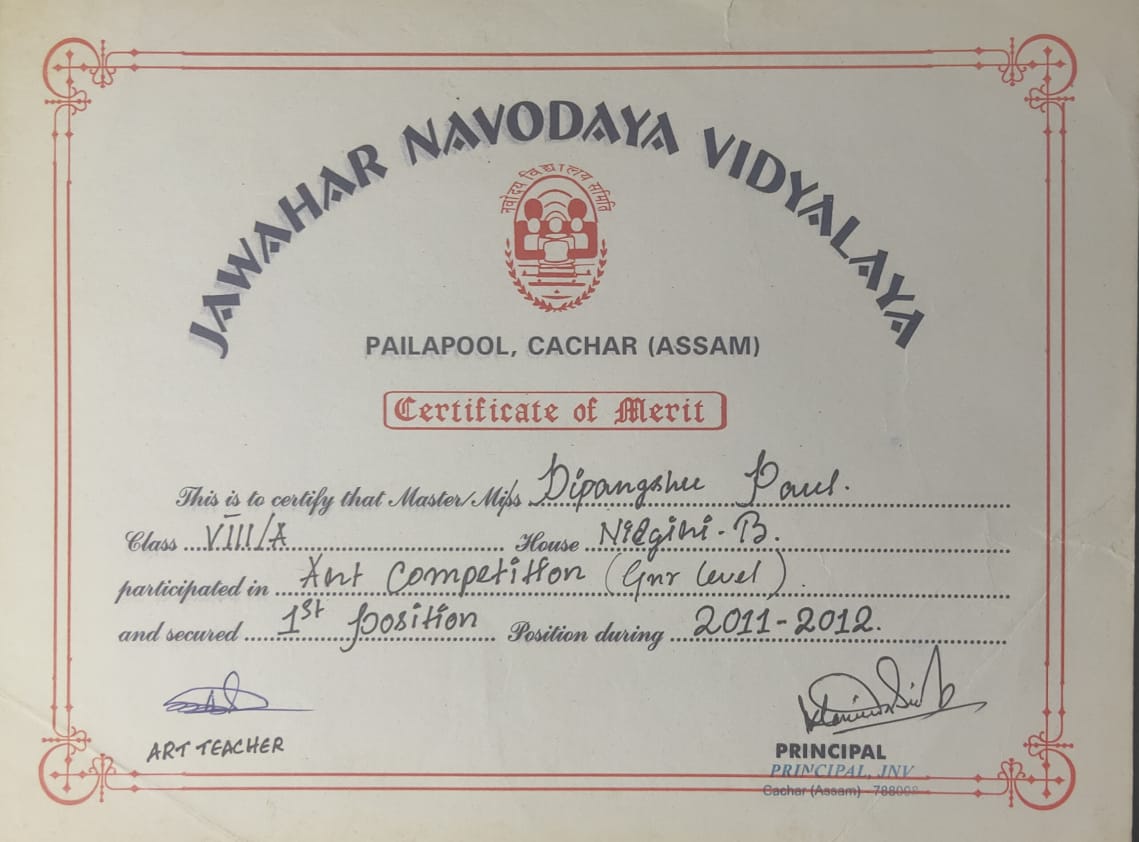 JAWAHAR NAVODAYA VIDYALAYA
नवोदय विद्यालय समिति
PAILAPOOL, CACHAR (ASSAM)
Certificate of Merit
This is to certify that Master/Miss Dipangshu Paul.
Class VIII/A House Nilgiri-B.
participated in Art Competition (Gnr level).
and secured 1st position Position during 2011-2012.
ART TEACHER
PRINCIPAL
PRINCIPAL, JNV
Cachar (Assam) - 788098